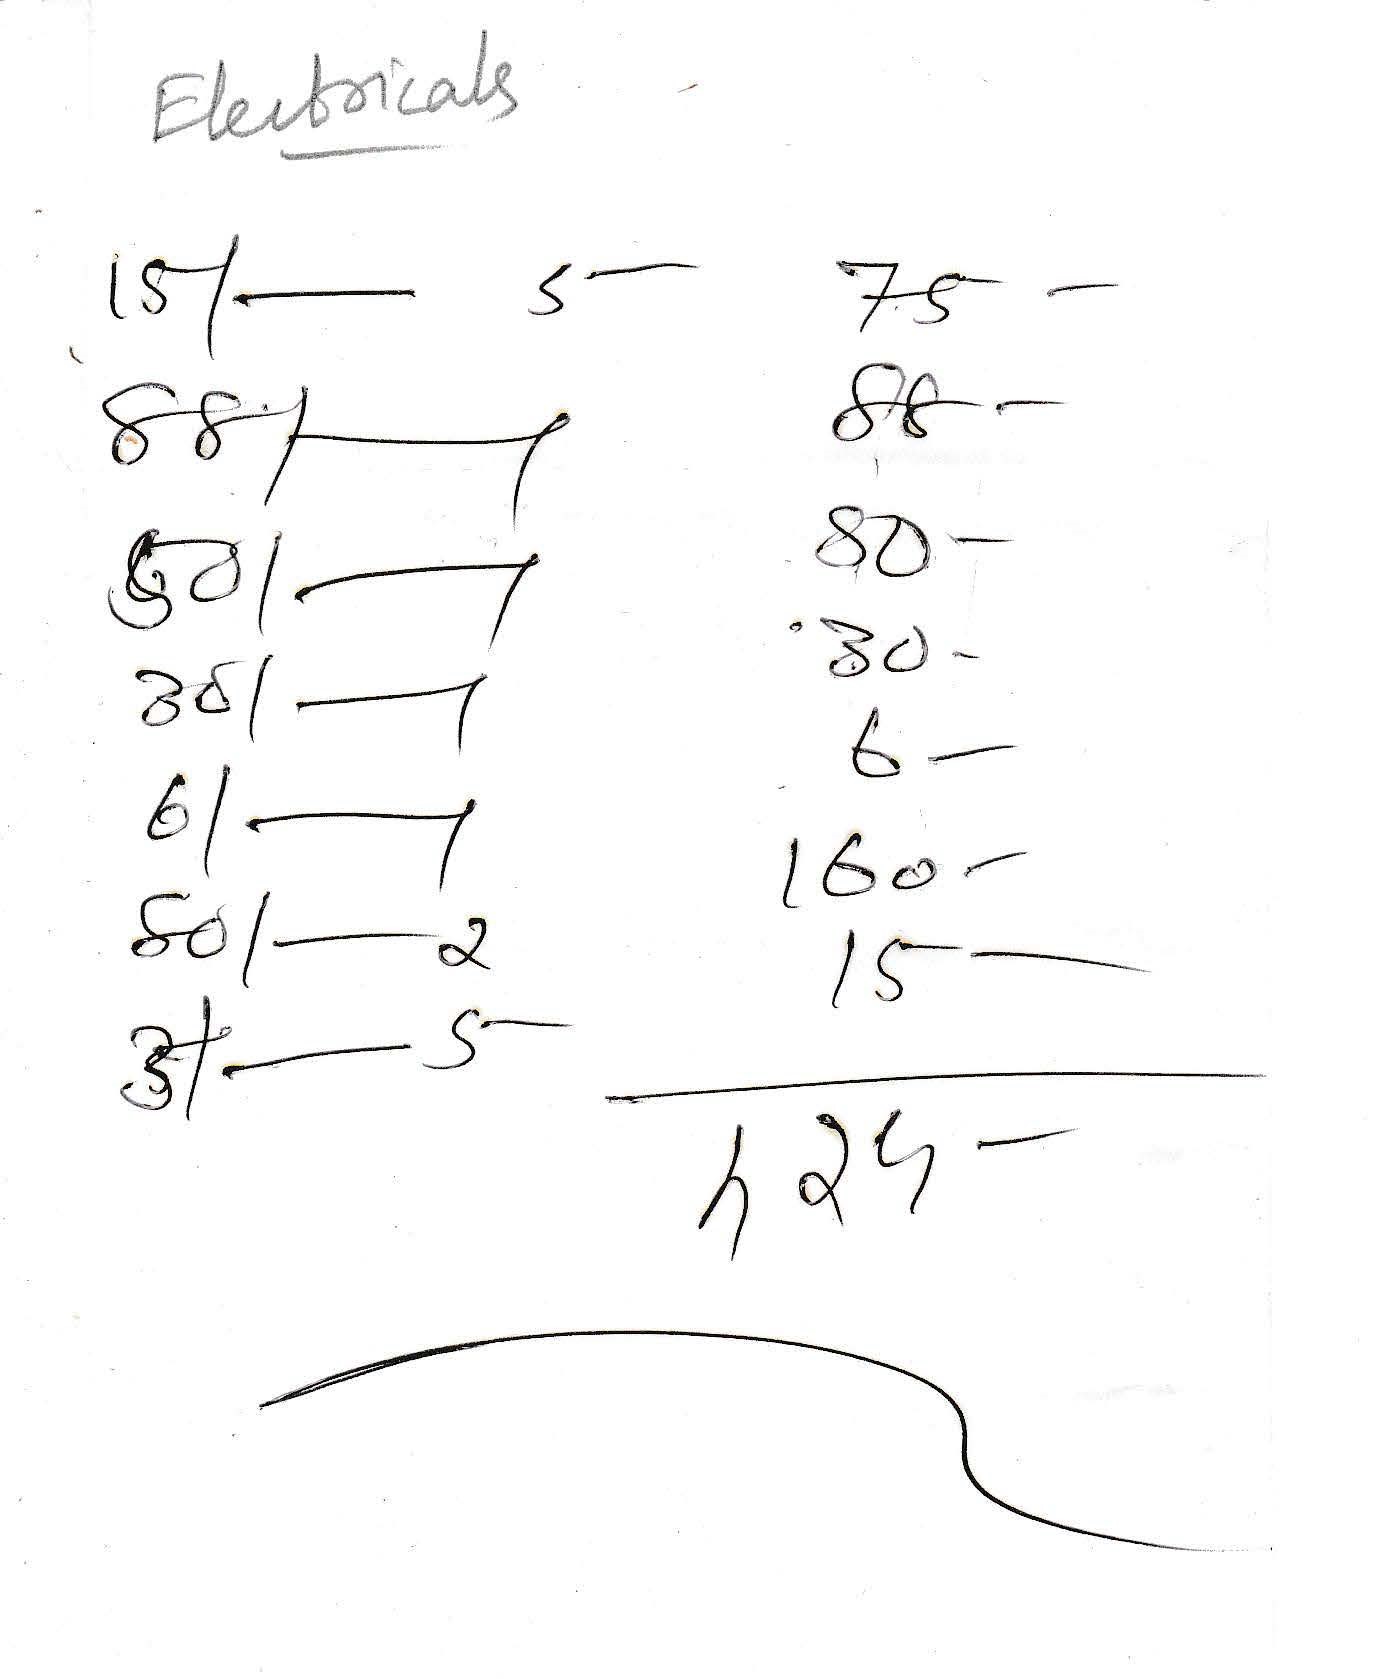 Electricals
15/— 5 — 75 —
88/— 1 88 —
80/— 1 80 —
30/— 1 30 —
6/— 1 6 —
80/— 2 160 —
3/— 5 — 15 —
424 —